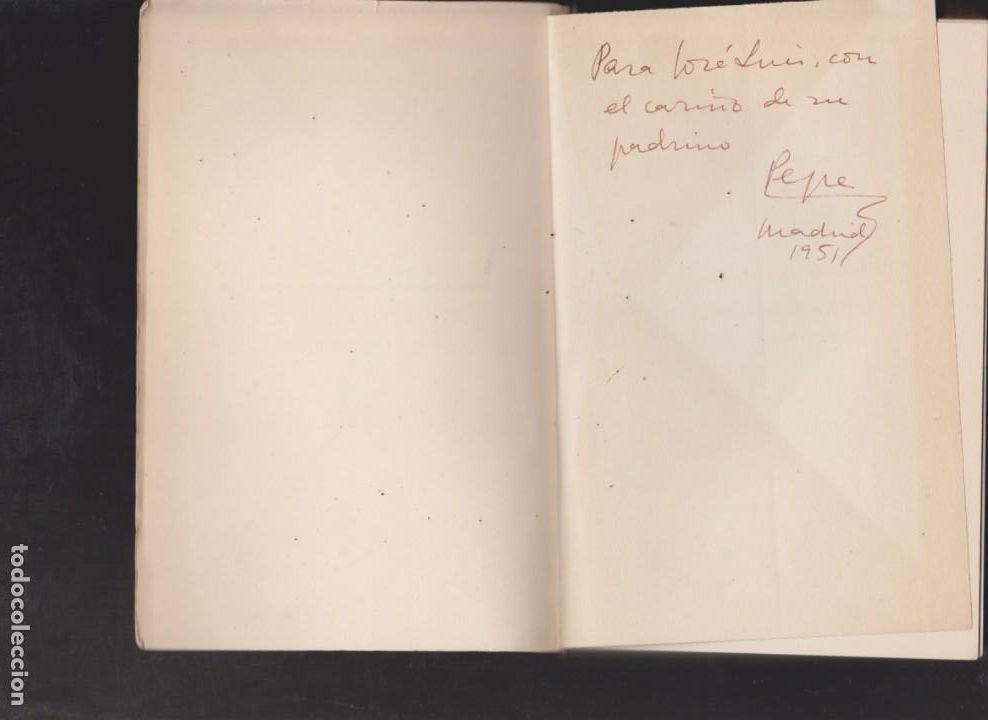 Para José Luis, con
el cariño de su
padrino
Pepe
Madrid
1951
todocoleccion